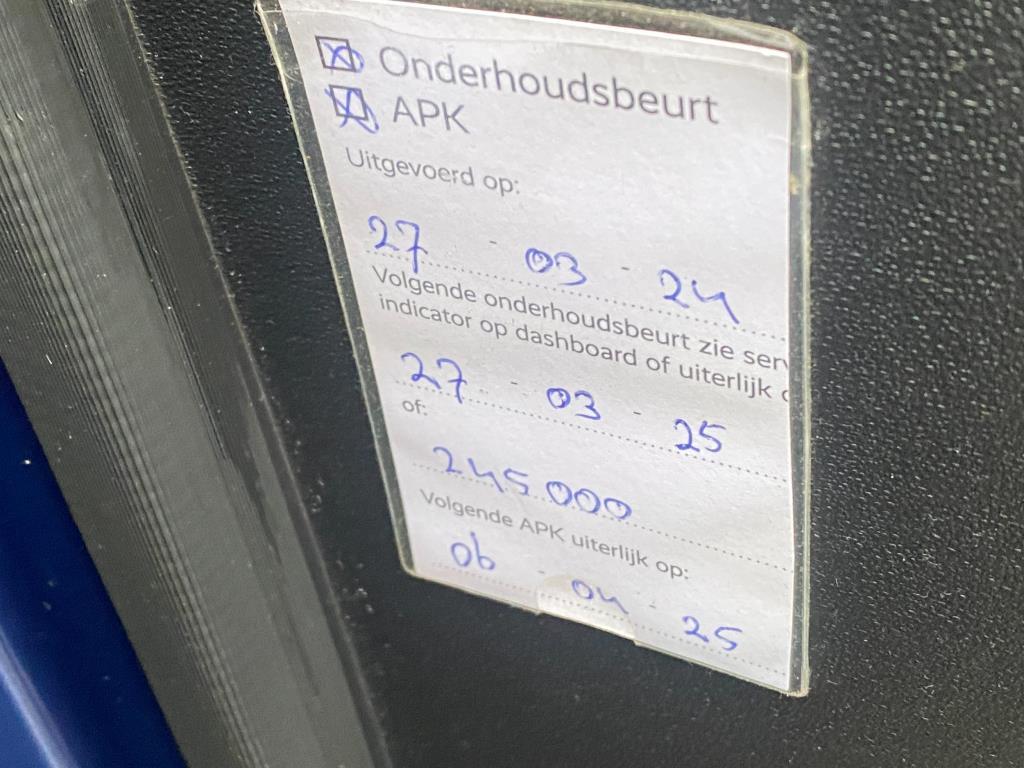 Onderhoudsbeurt
APK
Uitgevoerd op:
27 - 03 - 24
Volgende onderhoudsbeurt zie
indicator op dashboard of uiterlijk
27 - 03 - 25
of:
245.000
Volgende APK uiterlijk op:
06 - 04 - 25